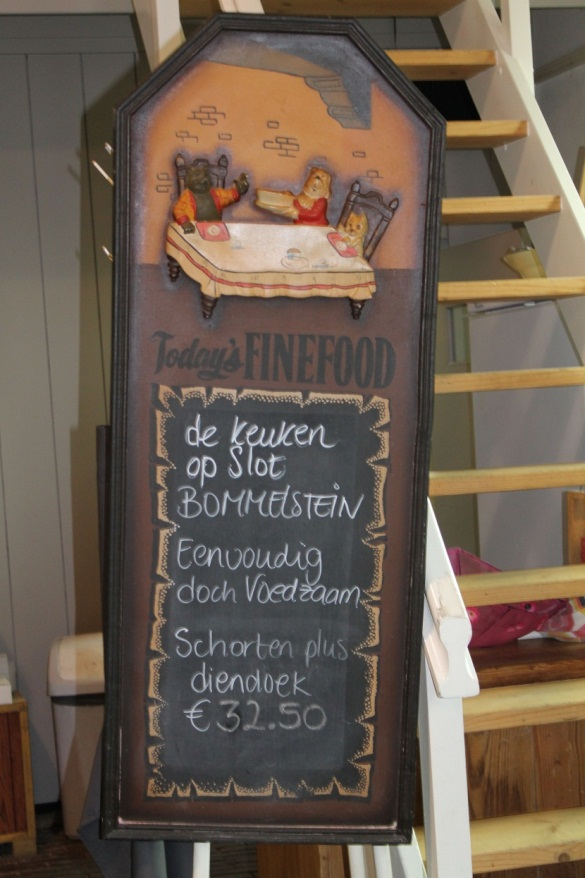 Today's FINEFOOD
de keuken
op Slot
BOMMELSTEIN
Eenvoudig
doch Voedzaam
Schorten plus
diendoek
€ 32.50